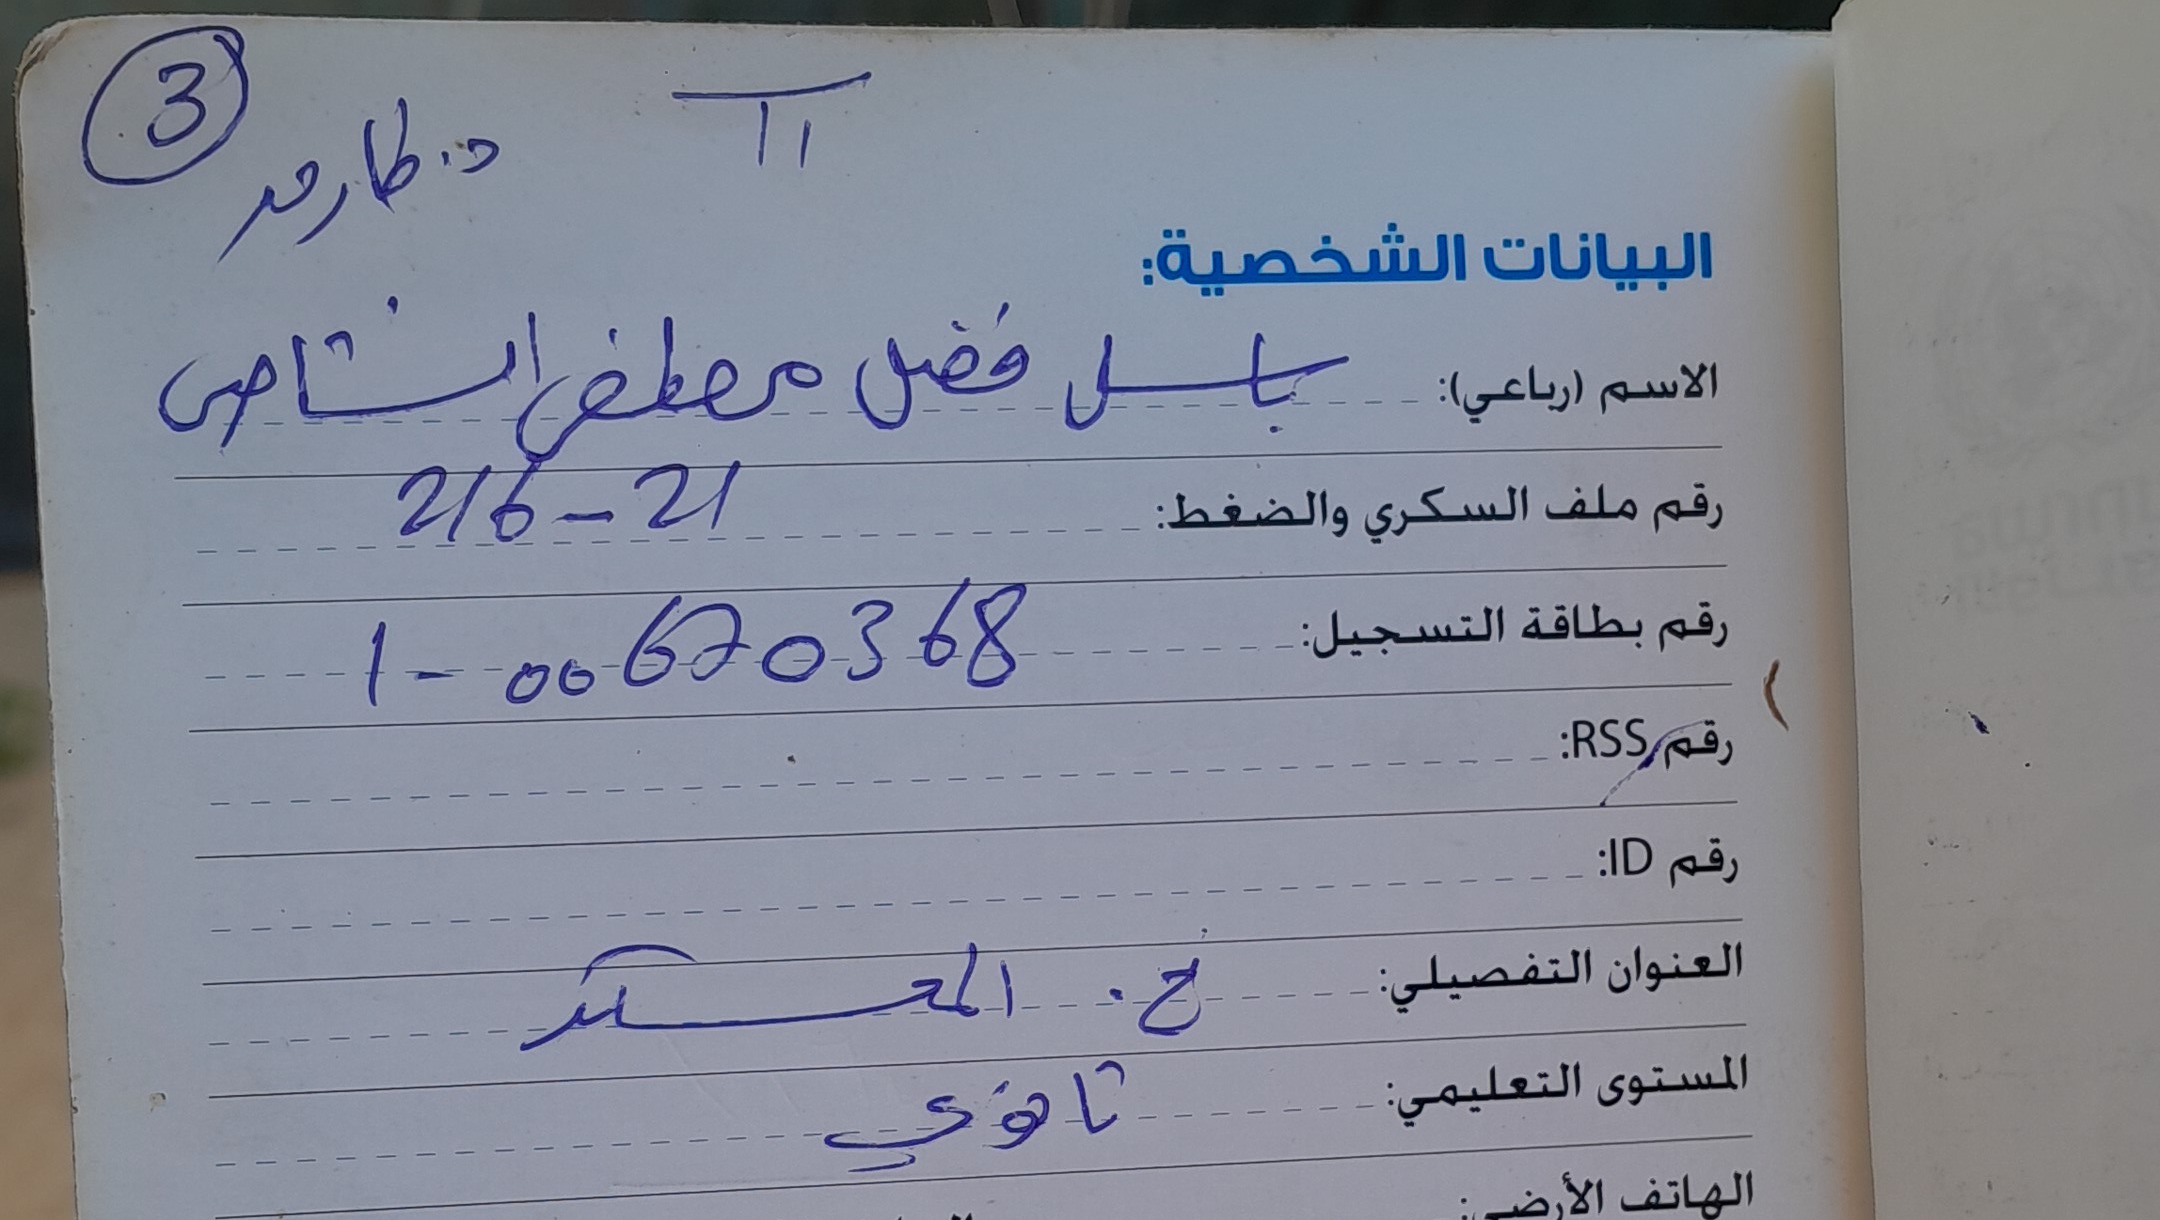 3
د. طارق
II
البيانات الشخصية:
الاسم (رباعي): باسل فضل مصطفى
رقم ملف السكري والضغط: 216-21
رقم بطاقة التسجيل: 1-00670368
رقم RSS:
رقم ID:
العنوان التفصيلي: خ. المعسكر
المستوى التعليمي: ثانوي
الهاتف الأرضي: